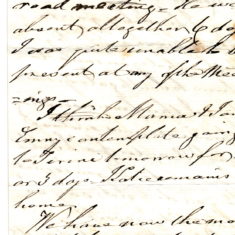 road meeting. He we
absent altogether 6 da
I was quite unable to b
present at any of the Mee
=ings.
I think Mama & Pa
Emmy contemplate going
to Irvine tomorrow for
or 3 days. Katie remains
home.
We have now the mo